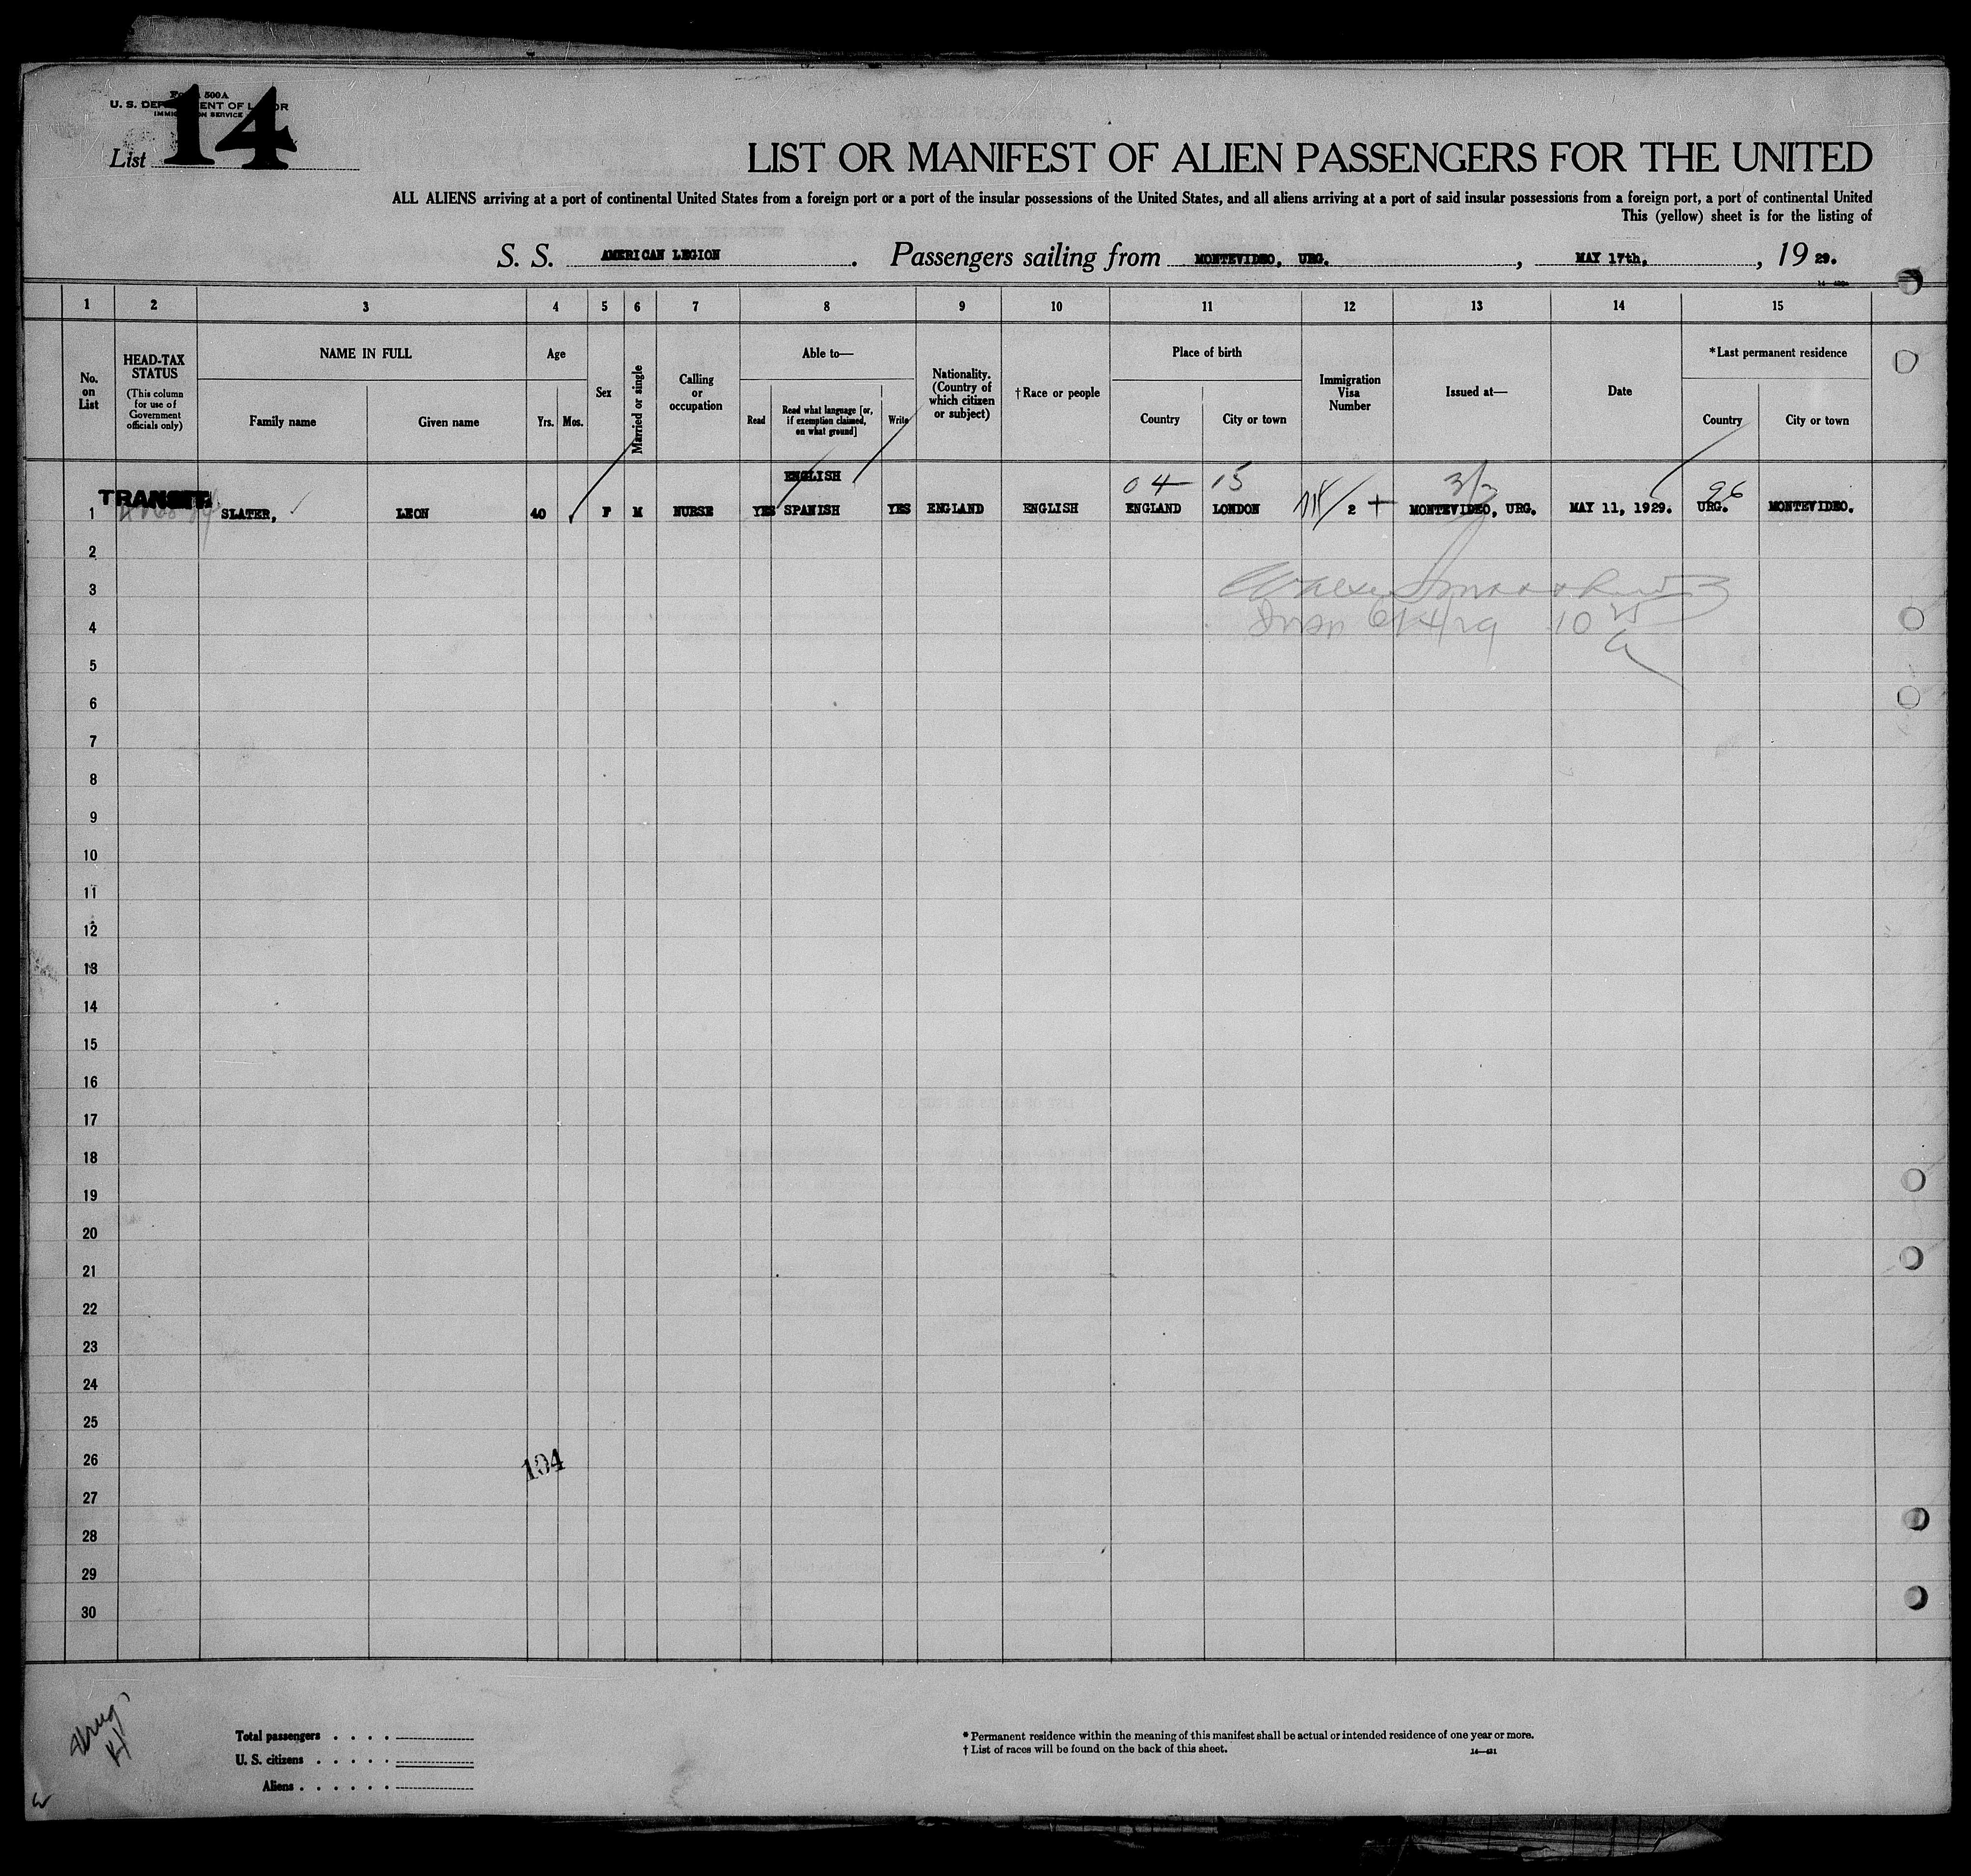 Form 500A
U. S. DEPARTMENT OF LABOR
IMMIGRATION SERVICE
List 14
LIST OR MANIFEST OF ALIEN PASSENGERS FOR THE UNITED
ALL ALIENS arriving at a port of continental United States from a foreign port or a port of the insular possessions of the United States, and all aliens arriving at a port of said insular possessions from a foreign port, a port of continental United
This (yellow) sheet is for the listing of
S. S. AMERICAN LEGION. Passengers sailing from MONTEVIDEO, URG., MAY 17th, 1929.
1 2 3 4 5 6 7 8 9 10 11 12 13 14 15
No. on List
HEAD-TAX STATUS
(This column for use of Government officials only)
NAME IN FULL
Family name
Given name
Age
Yrs. Mos.
Sex
Married or single
Calling or occupation
Able to—
Read
Read what language [or, if exemption claimed, on what ground]
Write
Nationality. (Country of which citizen or subject)
†Race or people
Place of birth
Country
City or town
Immigration Visa Number
Issued at—
Date
*Last permanent residence
Country
City or town
ENGLISH 04 15 96
TRANSIT
1 SLATER, LEON 40 F M NURSE YES SPANISH YES ENGLAND ENGLISH ENGLAND LONDON 2 MONTEVIDEO, URG. MAY 11, 1929. URG. MONTEVIDEO.
2
3
4 6/4/29 10
5
6
7
8
9
10
11
12
13
14
15
16
17
18
19
20
21
22
23
24
25
26 104
27
28
29
30
Total passengers . . . .
U. S. citizens . . . . .
Aliens . . . . . .
* Permanent residence within the meaning of this manifest shall be actual or intended residence of one year or more.
† List of races will be found on the back of this sheet.